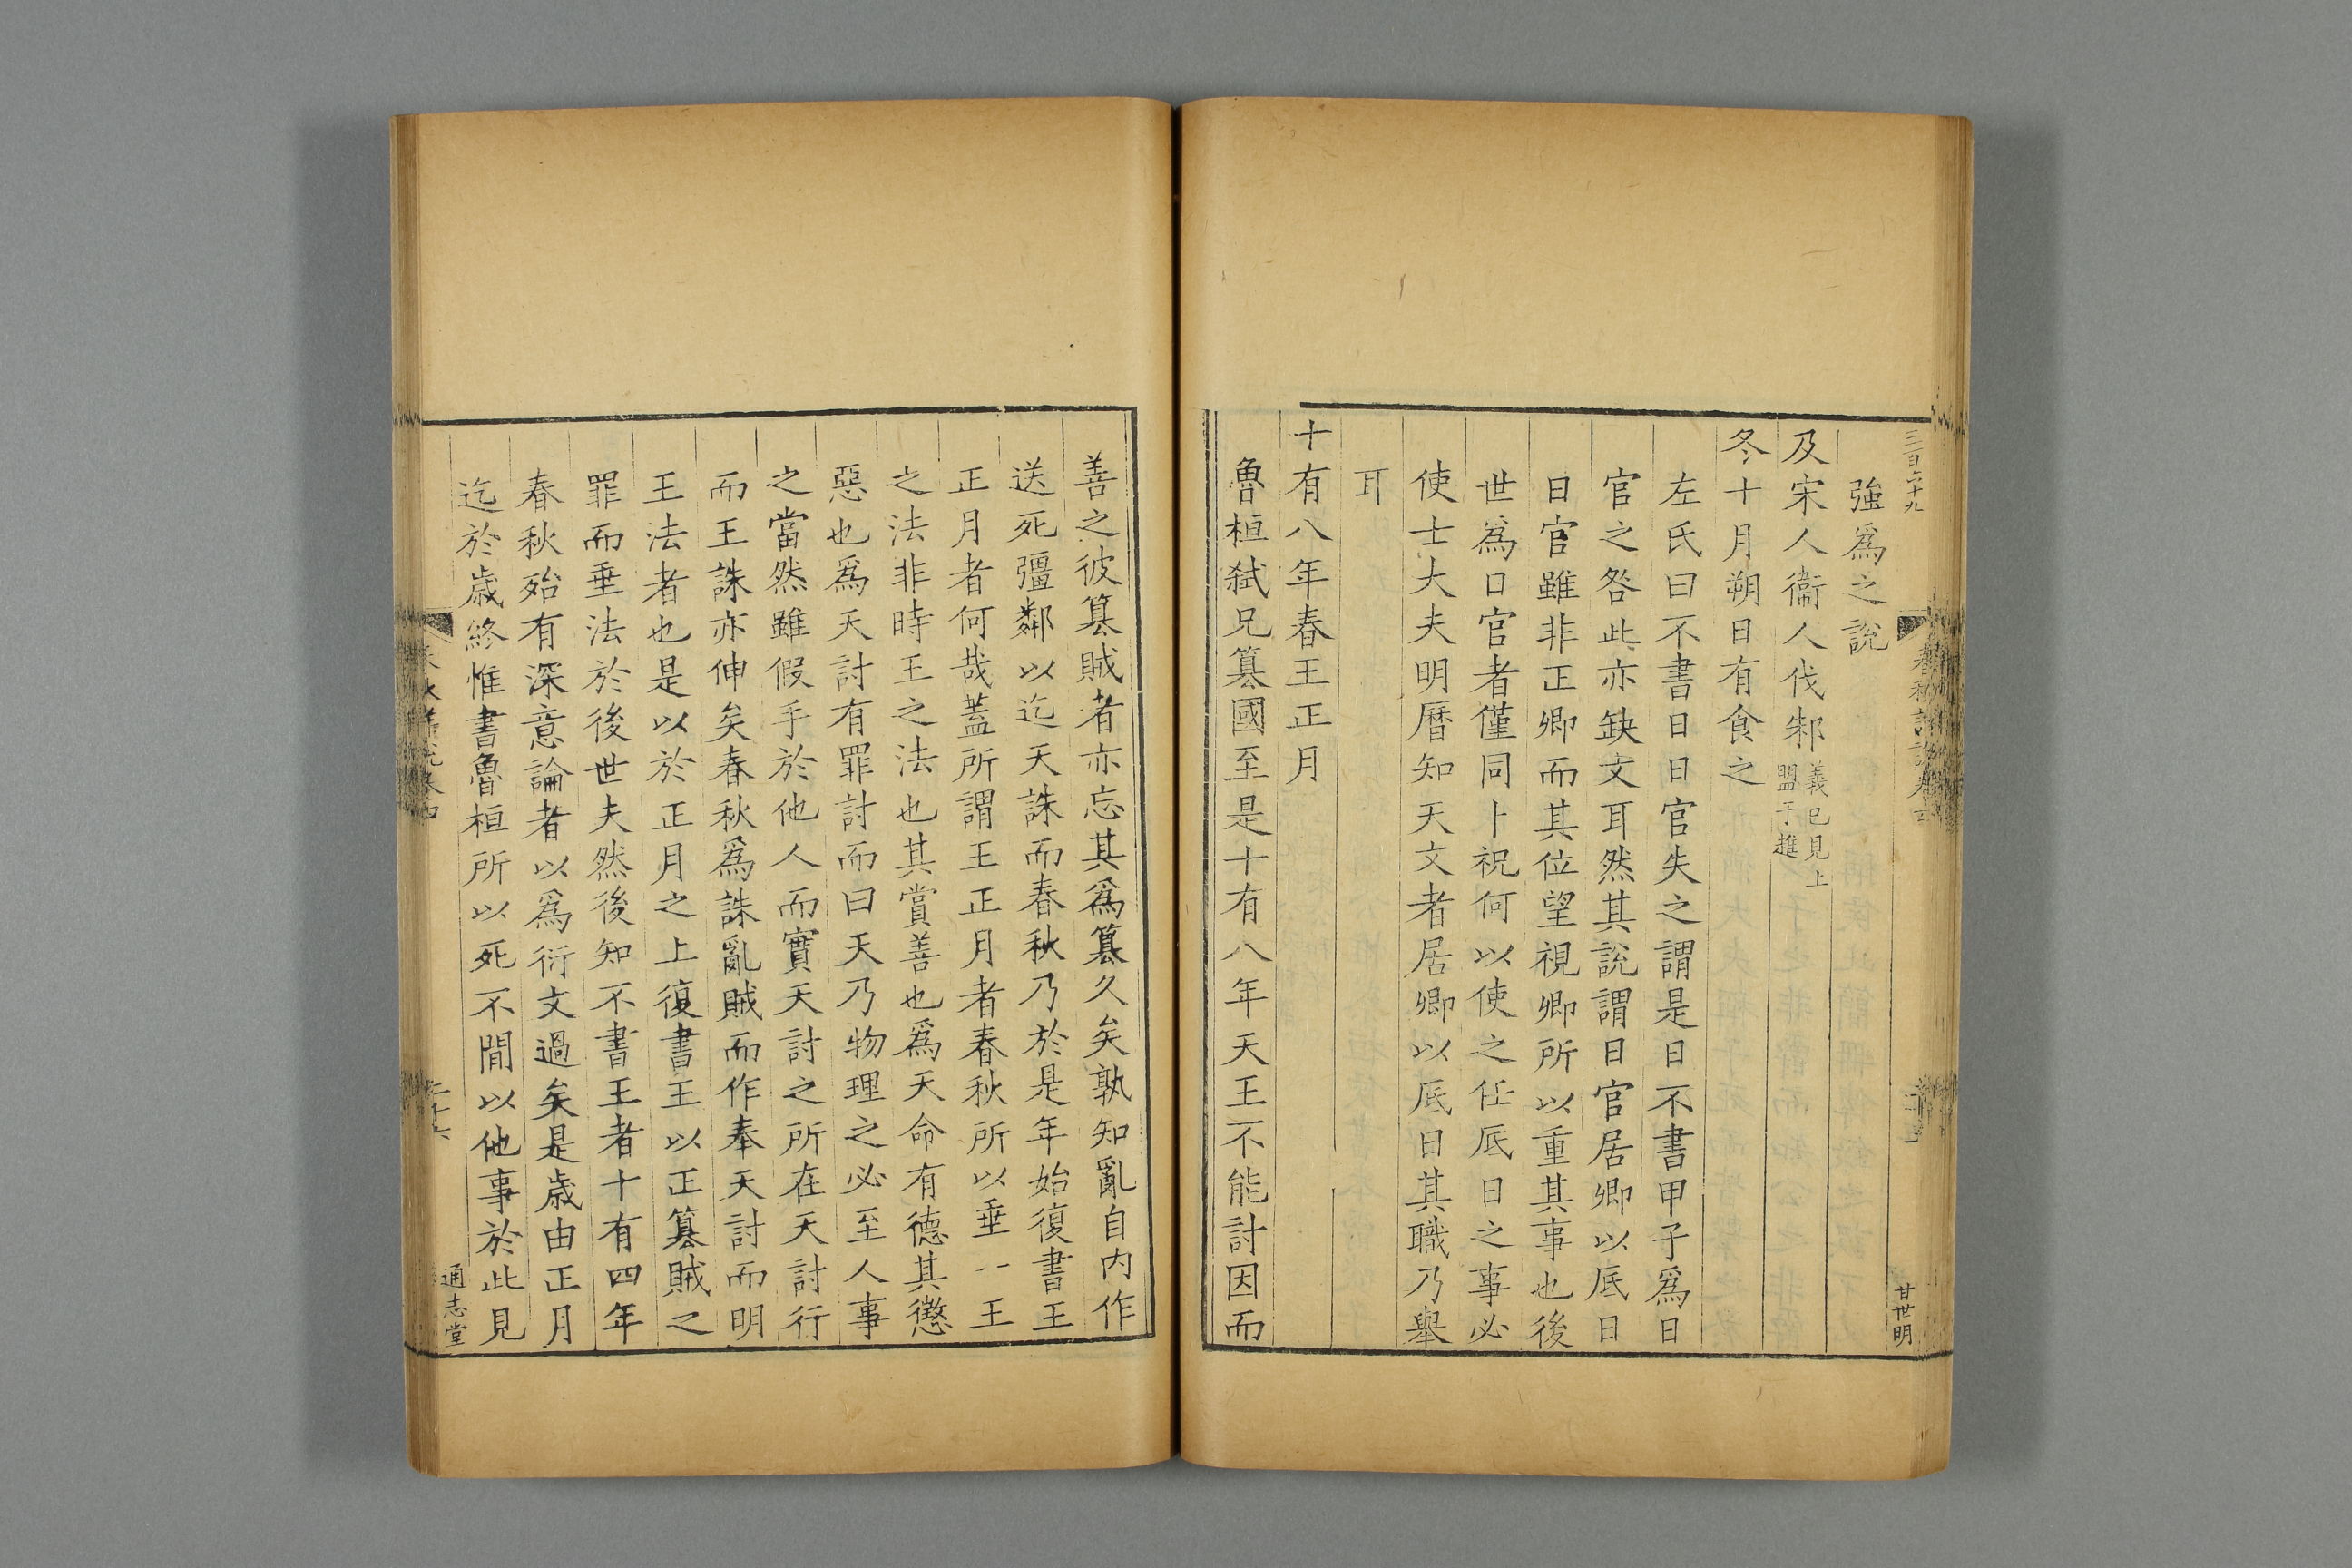 三百六十九
甘世明
強爲之說
及宋人衞人伐邾義已見上盟于趡
冬十月朔日有食之
左氏曰不書日日官失之謂是日不書甲子爲日
官之咎此亦缺文耳然其說謂日官居卿以底日
日官雖非正卿而其位望視卿所以重其事也後
世爲日官者僅同卜祝何以使之任底日之事必
使士大夫明曆知天文者居卿以底日其職乃舉
耳
十有八年春王正月
魯桓弑兄簒國至是十有八年天王不能討因而
善之彼簒賊者亦忘其爲簒久矣孰知亂自内作
送死彊鄰以迄天誅而春秋乃於是年始復書王
正月者何哉蓋所謂王正月者春秋所以垂一王
之法非時王之法也其賞善也爲天命有德其懲
惡也爲天討有罪討而曰天乃物理之必至人事
之當然雖假手於他人而實天討之所在天討行
而王誅亦伸矣春秋爲誅亂賊而作奉天討而明
王法者也是以於正月之上復書王以正簒賊之
罪而垂法於後世夫然後知不書王者十有四年
春秋殆有深意論者以爲衍文過矣是歳由正月
迄於歳終惟書魯桓所以死不間以他事於此見
通志堂